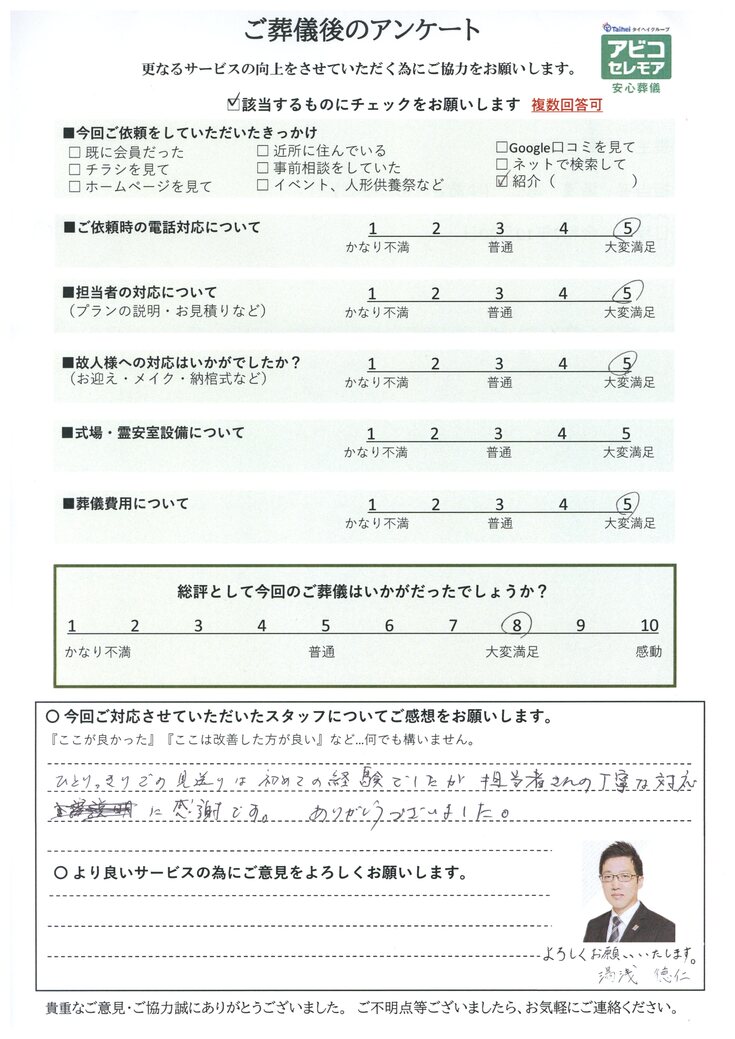 ご葬儀後のアンケート
Taihei タイヘイグループ
アビコ
セレモア
安心葬儀
更なるサービスの向上をさせていただく為にご協力をお願いします。
☑該当するものにチェックをお願いします 複数回答可
■今回ご依頼をしていただいたきっかけ
□ 既に会員だった □ 近所に住んでいる □Google口コミを見て
□ チラシを見て □ 事前相談をしていた □ ネットで検索して
□ ホームページを見て □ イベント、人形供養祭など ☑ 紹介（ ）
■ご依頼時の電話対応について 1 2 3 4 5
かなり不満 普通 大変満足
■担当者の対応について 1 2 3 4 5
（プランの説明・お見積りなど） かなり不満 普通 大変満足
■故人様への対応はいかがでしたか？ 1 2 3 4 5
（お迎え・メイク・納棺式など） かなり不満 普通 大変満足
■式場・霊安室設備について 1 2 3 4 5
かなり不満 普通 大変満足
■葬儀費用について 1 2 3 4 5
かなり不満 普通 大変満足
総評として今回のご葬儀はいかがだったでしょうか？
1 2 3 4 5 6 7 8 9 10
かなり不満 普通 大変満足 感動
〇 今回ご対応させていただいたスタッフについてご感想をお願いします。
『ここが良かった』『ここは改善した方が良い』など…何でも構いません。
ひとりっきりでの見送りは初めての経験でしたが 担当者さんの丁寧な対応
に感謝です。 ありがとうございました。
〇 より良いサービスの為にご意見をよろしくお願いします。
よろしくお願いいたします。
湯浅 徳仁
貴重なご意見・ご協力誠にありがとうございました。 ご不明点等ございましたら、お気軽にご連絡ください。